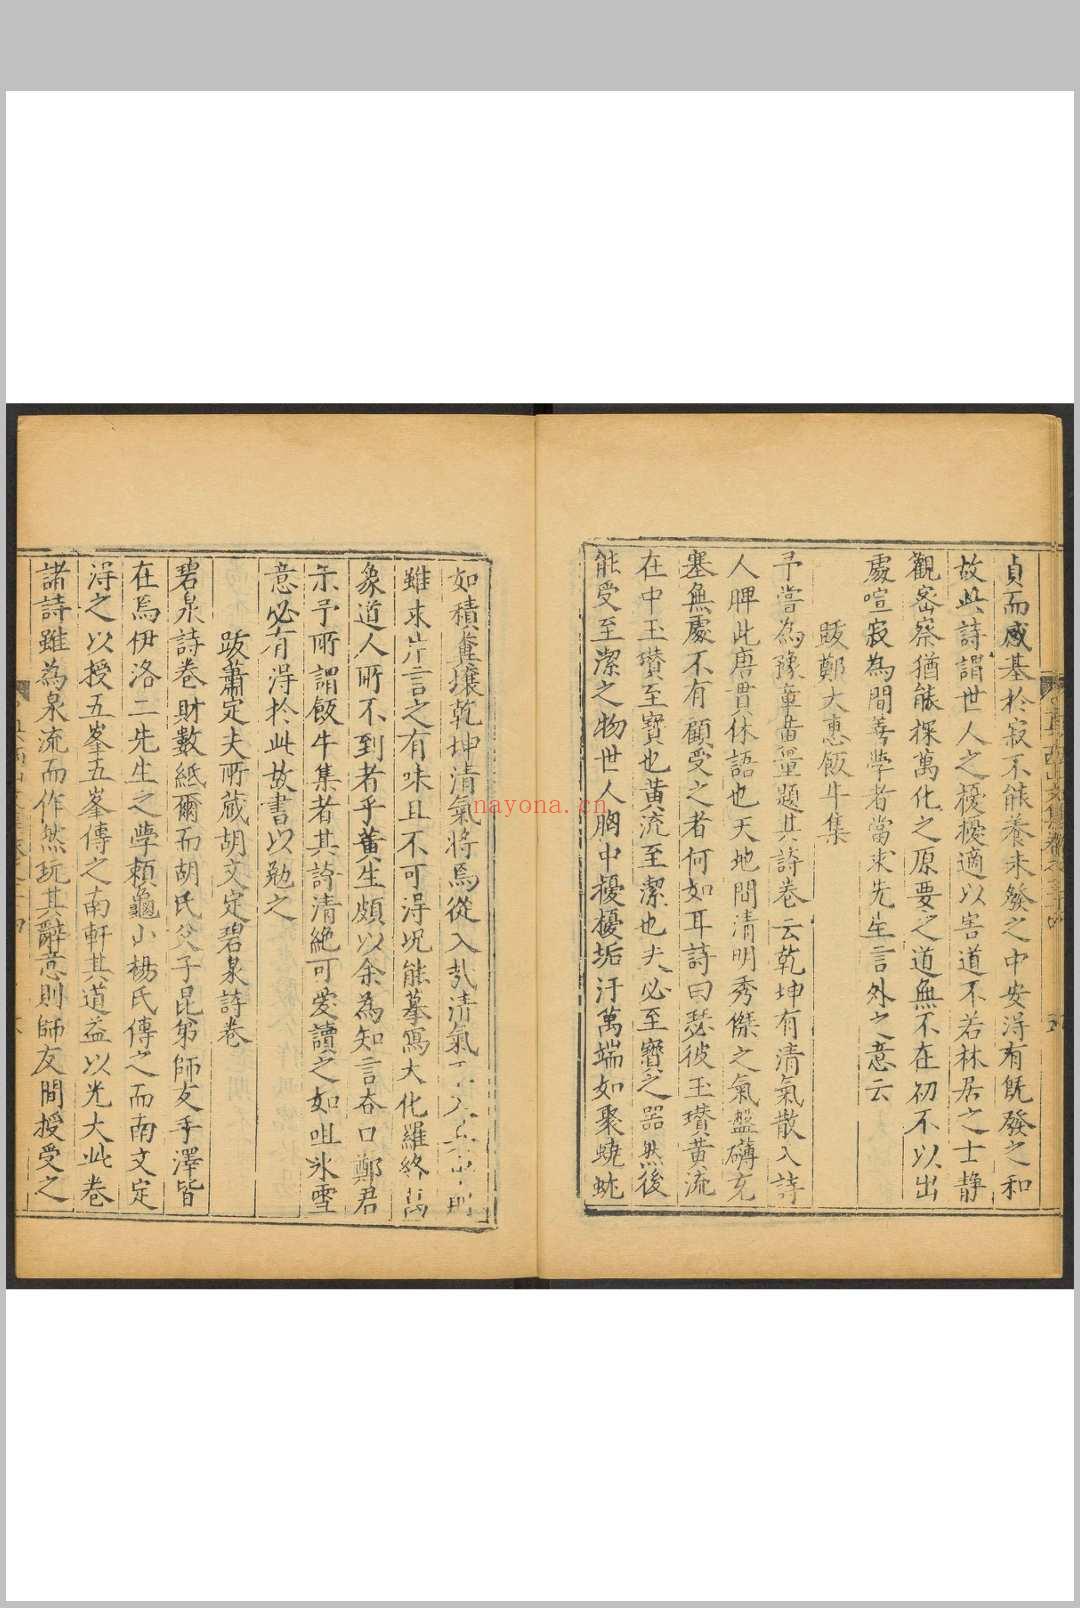 貞而感基於寂不能養未發之中安得有既發之和
故此詩謂世人之擾擾適以害道不若林居之士靜
觀宻察猶能探萬化之原要之道無不在初不以出
處喧寂為間善學者當求先生言外之意云
跋鄭大惠飯牛集
予嘗為豫章黃量題其詩卷云乾坤有清氣散入詩
人脾此唐貫休語也天地間清明秀傑之氣盤礴充
塞無處不有顧受之者何如耳詩曰瑟彼玉瓚黃流
在中玉瓚至寶也黃流至潔也夫必至寶之器然後
能受至潔之物世人胸中擾擾垢汙萬端如聚蟯蚘
如積糞壤乾坤清氣將焉從入㢤清氣
雖末㳺言之有味且不可得况能摹寫大化羅終萬
象道人所不到者乎黃生頗以余為知言吞口鄭君
示予所謂飯牛集者其詩清絶可愛讀之如咀氷雪
意必有得於此故書以勉之
跋蕭定夫所藏胡文定碧泉詩卷
碧泉詩卷財數紙爾而胡氏父子昆弟師友手澤皆
在焉伊洛二先生之學頼龜山楊氏傳之而南文定
得之以授五峯五峯傳之南軒其道益以光大此卷
諸詩雖為泉流而作然玩其辭意則師友間授受之
nayona.cn